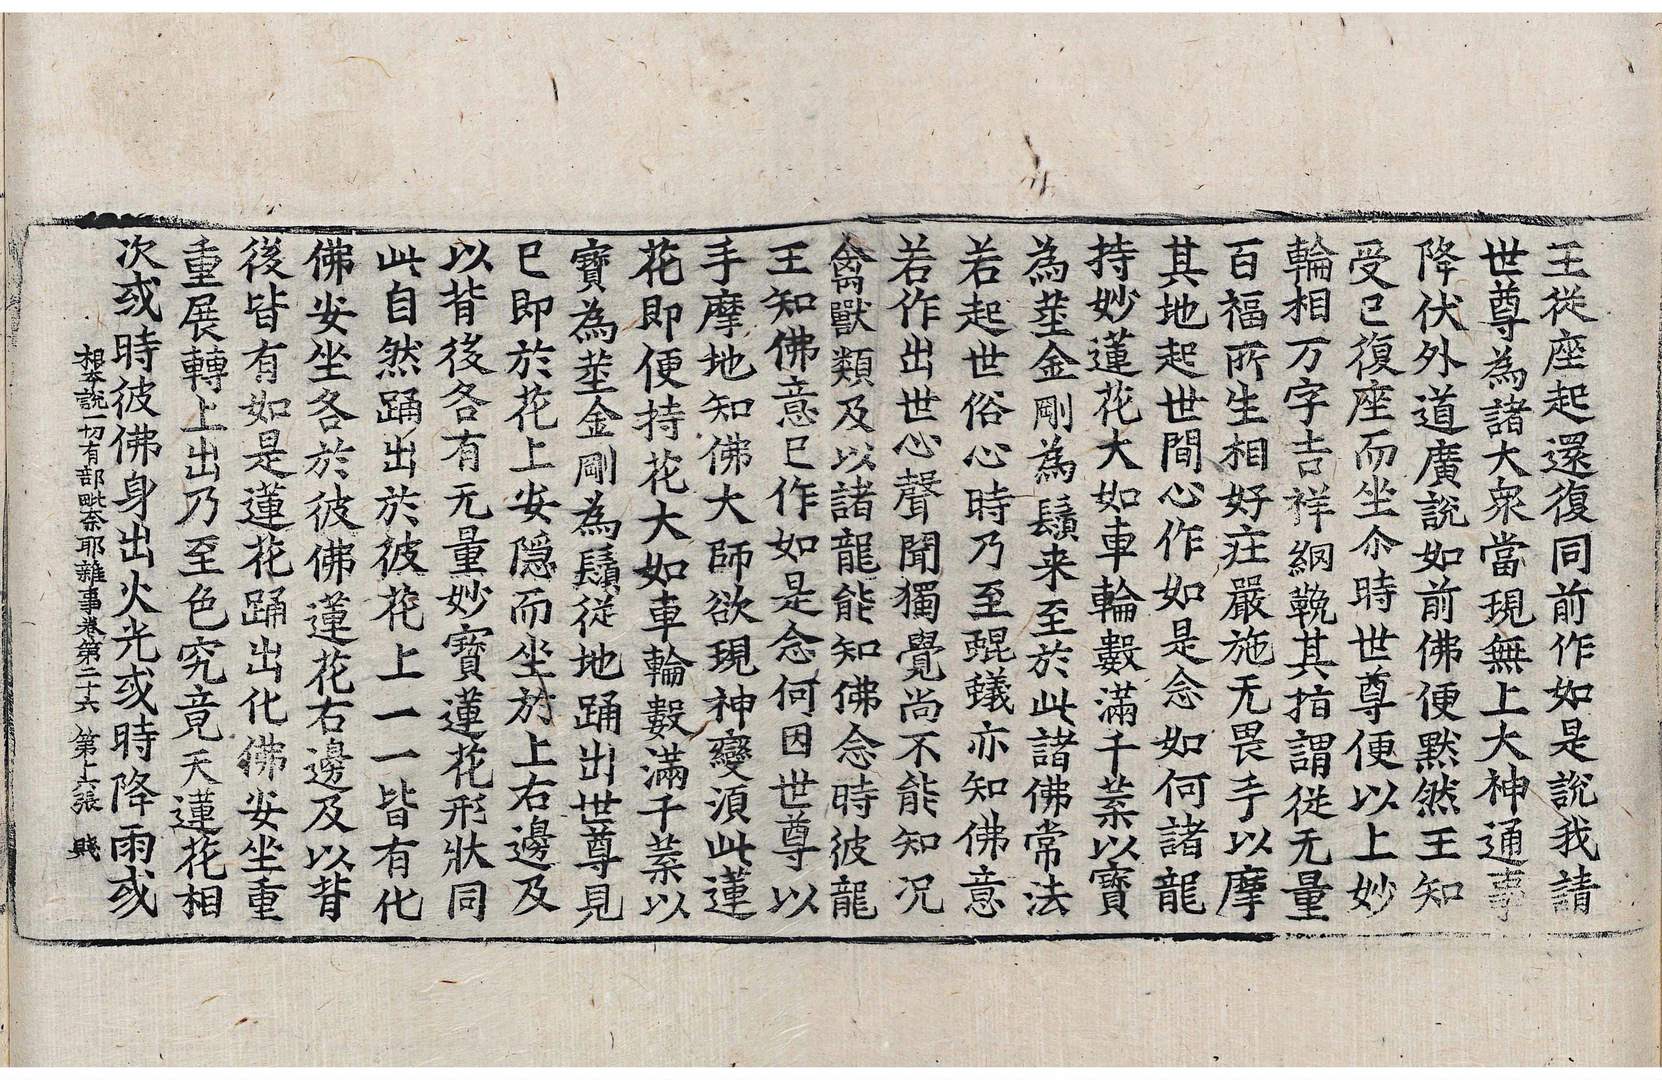 王從座起還復同前作如是說我請
世尊為諸大衆當現無上大神通事
降伏外道廣說如前佛便默然王知
受已復座而坐尒時世尊便以上妙
輪相万字吉祥網鞔其指謂從无量
百福所生相好庄嚴施无畏手以摩
其地起世間心作如是念如何諸龍
持妙蓮花大如車輪數滿千葉以寶
為莖金剛為鬚来至於此諸佛常法
若起世俗心時乃至蜫蟻亦知佛意
若作出世心聲聞獨覺尚不能知况
禽獸類及以諸龍能知佛念時彼龍
王知佛意已作如是念何因世尊以
手摩地知佛大師欲現神變須此蓮
花即便持花大如車輪數滿千葉以
寶為莖金剛為鬚從地踊出世尊見
已即於花上安隱而坐於上右邊及
以背後各有无量妙寶蓮花形狀同
此自然踊出於彼花上一一皆有化
佛安坐各於彼佛蓮花右邊及以背
後皆有如是蓮花踊出化佛安坐重
重展轉上出乃至色究竟天蓮花相
次或時彼佛身出火光或時降雨或
根本說一切有部毗奈耶雜事卷第二十六 第十六張 賤